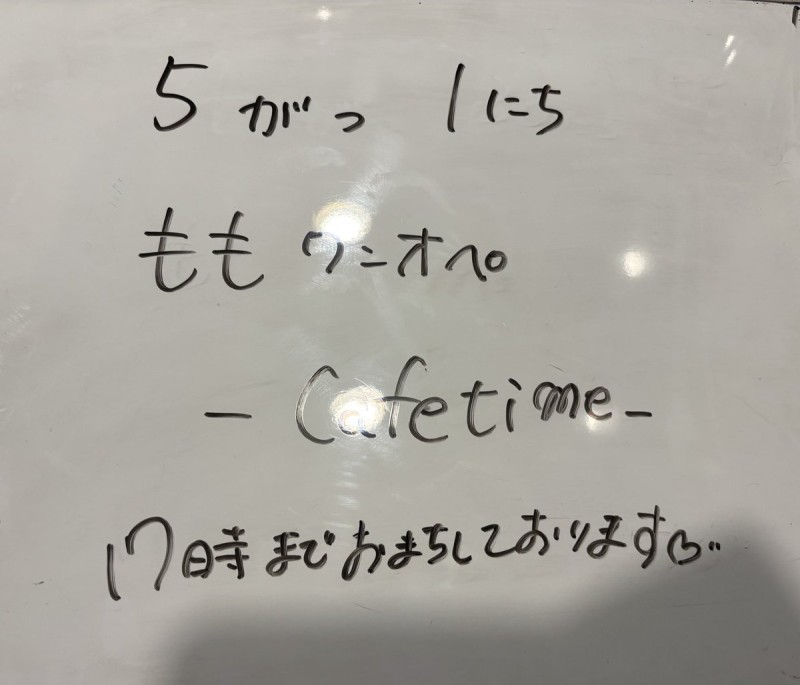 5がつ 1にち
ももワンオペ
- Cafetime -
17時までおまちしております♡